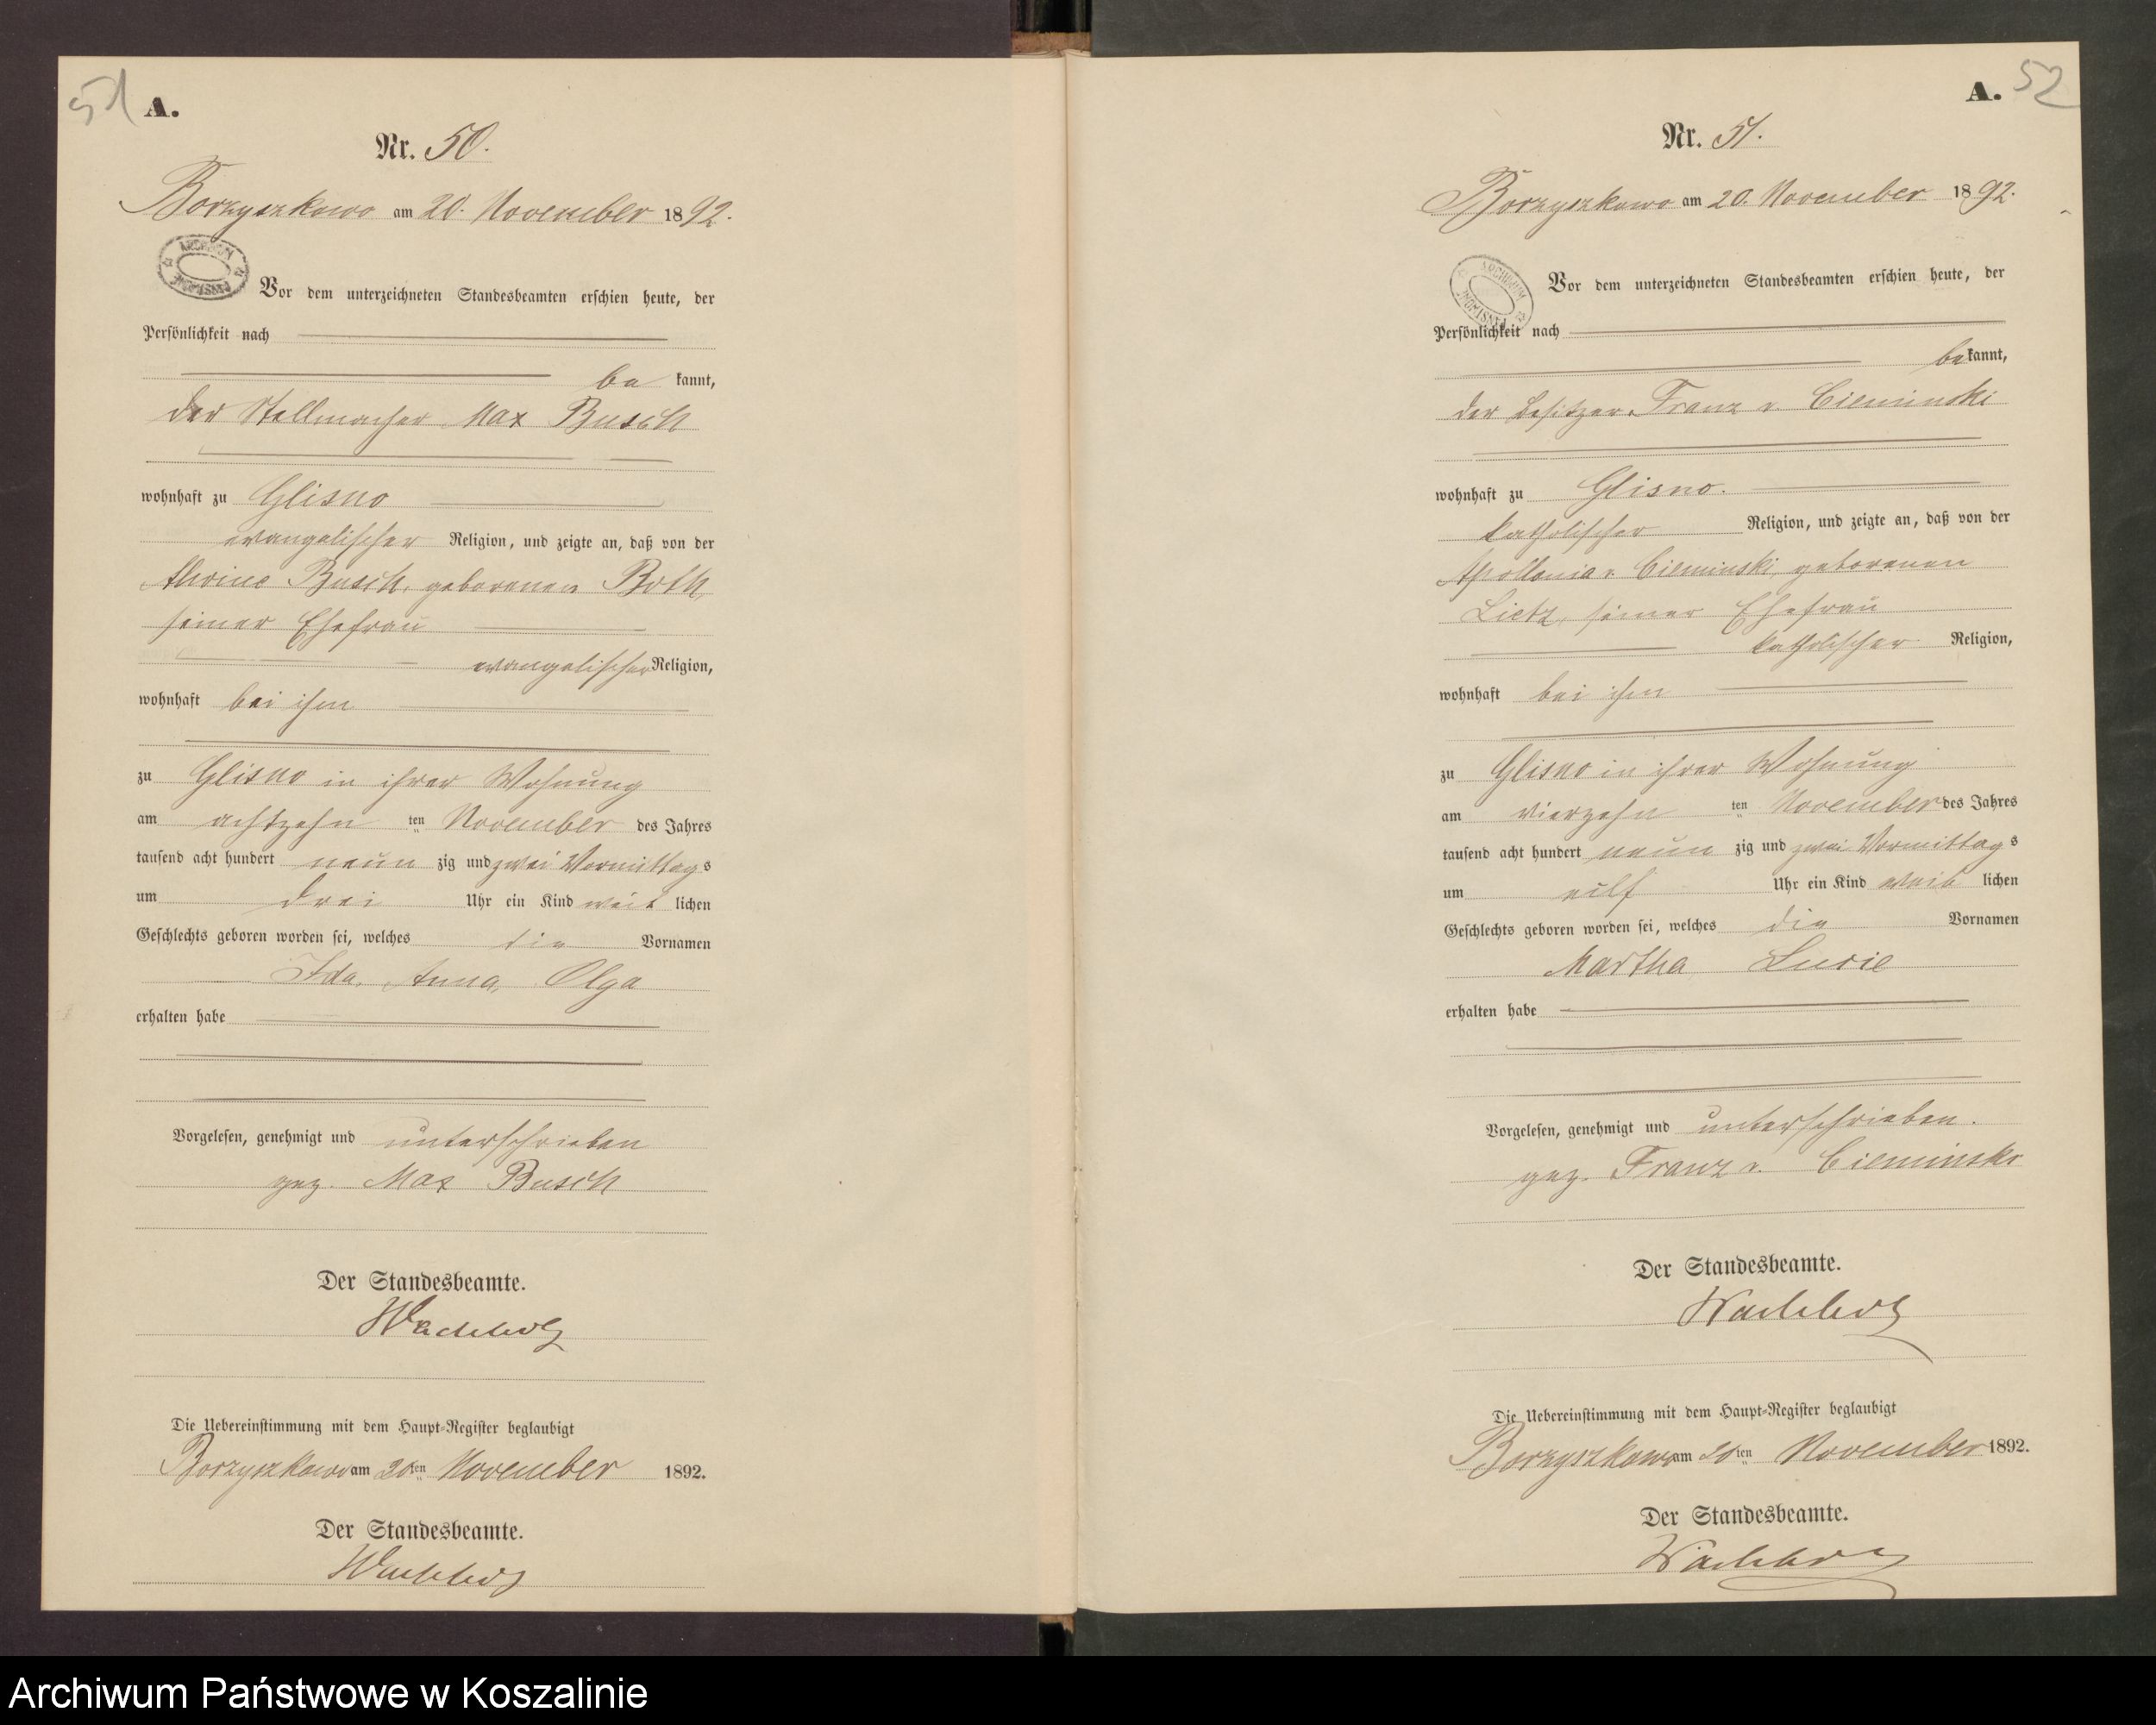 51
A.
Nr. 50.
Borzyszkowo am 20. November 1892.
ARCHIWUM PAŃSTWOWE
Vor dem unterzeichneten Standesbeamten erschien heute, der
Persönlichkeit nach
be kannt,
der Stellmacher Max Busch
wohnhaft zu Glisno
evangelischer Religion, und zeigte an, daß von der
Busch, geborenen Roth,
seiner Ehefrau
evangelischer Religion,
wohnhaft bei ihm
zu Glisno in ihrer Wohnung
am achtzehn ten November des Jahres
tausend acht hundert neun zig und zwei Vormittags
um drei Uhr ein Kind weib lichen
Geschlechts geboren worden sei, welches die Vornamen
Ida, Anna, Olga
erhalten habe
Vorgelesen, genehmigt und unterschrieben
gez. Max Busch
Der Standesbeamte.
Wachholz
Die Uebereinstimmung mit dem Haupt-Register beglaubigt
Borzyszkowo am 20ten November 1892.
Der Standesbeamte.
Wachholz
A. 52
Nr. 51.
Borzyszkowo am 20. November 1892.
ARCHIWUM PAŃSTWOWE
Vor dem unterzeichneten Standesbeamten erschien heute, der
Persönlichkeit nach
bekannt,
der Besitzer Franz v. Cieminski
wohnhaft zu Glisno.
katholischer Religion, und zeigte an, daß von der
Apollonia v. Cieminski, geborenen
Lietz, seiner Ehefrau
katholischer Religion,
wohnhaft bei ihm
zu Glisno in ihrer Wohnung
am vierzehn ten November des Jahres
tausend acht hundert neun zig und zwei Vormittags
um eilf Uhr ein Kind weib lichen
Geschlechts geboren worden sei, welches die Vornamen
Martha Lucie
erhalten habe
Vorgelesen, genehmigt und unterschrieben.
gez. Franz v. Cieminski
Der Standesbeamte.
Wachholz
Die Uebereinstimmung mit dem Haupt-Register beglaubigt
Borzyszkowo am 20ten November 1892.
Der Standesbeamte.
Wachholz
Archiwum Państwowe w Koszalinie